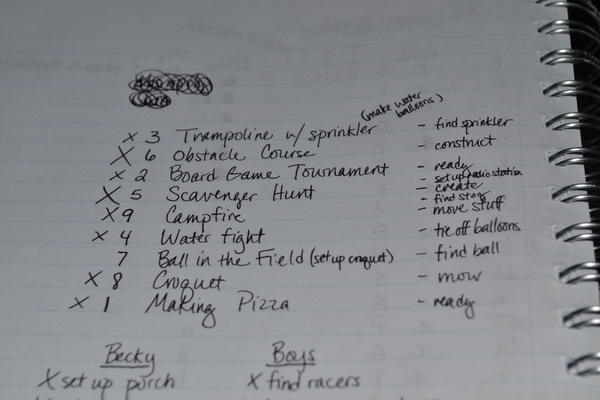 (make water balloons)
x 3 Trampoline w/ sprinkler - find sprinkler
X 6 Obstacle Course - construct
x 2 Board Game Tournament - ready
- set up radio station
X 5 Scavenger Hunt - create
- find story
X 9 Campfire - move stuff
x 4 Water fight - tie off balloons
7 Ball in the Field (set up croquet) - find ball
x 8 Croquet - mow
x 1 Making Pizza - ready
Becky Boys
X set up porch X find racers